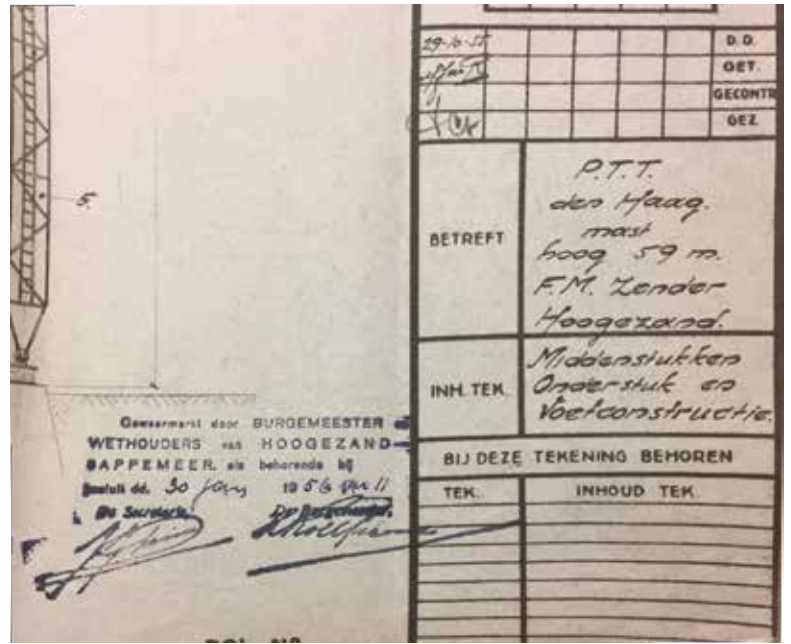 5.
29-10-55
D.D.
GET.
GECONTR
GEZ
BETREFT
P.T.T.
den Haag.
mast
hoog 59 m.
F.M. Zender
Hoogezand.
INH. TEK.
Middenstukken
Onderstuk en
Voetconstructie.
BIJ DEZE TEKENING BEHOREN
TEK.
INHOUD TEK.
Gewaarmerkt door BURGEMEESTER en
WETHOUDERS van HOOGEZAND-
SAPPEMEER, als behorende bij
Besluit dd. 30 jan 1956
De Secretaris, De Burgemeester,